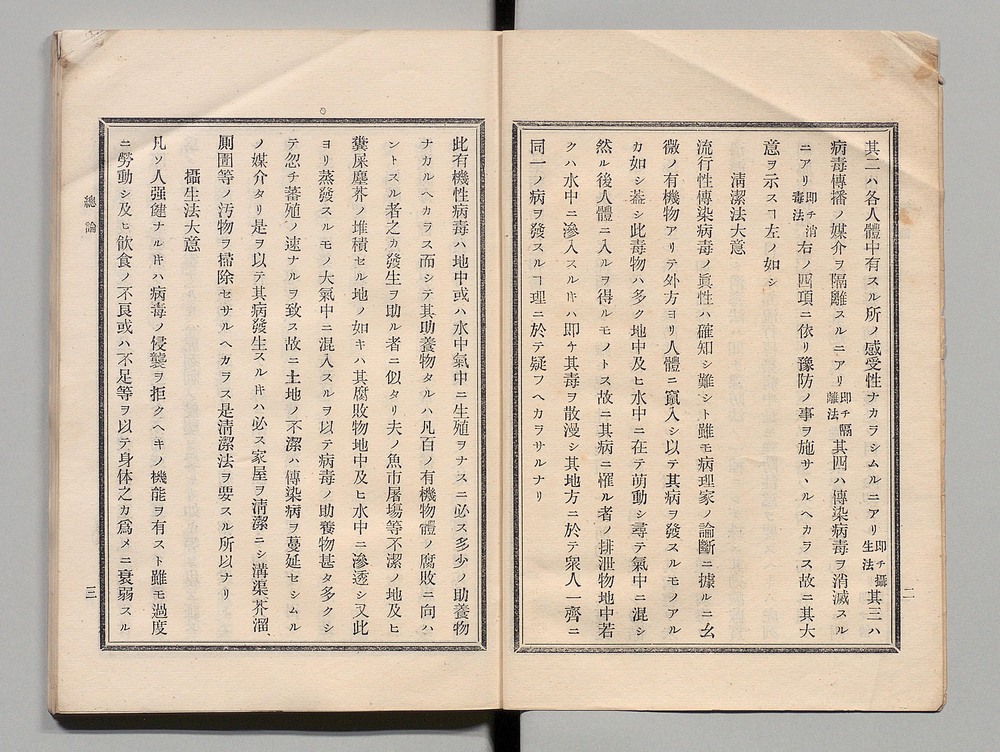 其二ハ各人體中有スル所ノ感受性ナカラシムルニアリ即チ攝生法其三ハ
病毒傳播ノ媒介ヲ隔離スルニアリ即チ隔離法其四ハ傳染病毒ヲ消滅スル
ニアリ即チ消毒法右ノ四項ニ依リ豫防ノ事ヲ施サヽルヘカラス故ニ其大
意ヲ示スヿ左ノ如シ
淸潔法大意
流行性傳染病毒ノ眞性ハ確知シ難シト雖モ病理家ノ論斷ニ據ルニ幺
微ノ有機物アリテ外方ヨリ人體ニ竄入シ以テ其病ヲ發スルモノアル
カ如シ葢シ此毒物ハ多ク地中及ヒ水中ニ在テ萌動シ尋テ氣中ニ混シ
然ル後人體ニ入ルヲ得ルモノトス故ニ其病ニ罹ル者ノ排泄物地中若
クハ水中ニ滲入スルㇳキハ卽ケ其毒ヲ散漫シ其地方ニ於テ衆人一齊ニ
同一ノ病ヲ發スルヿ理ニ於テ疑フヘカヲサルナリ
二
此有機性病毒ハ地中或ハ水中氣中ニ生殖ヲナスニ必ス多少ノ助養物
ナカルヘカラス而シテ其助養物タルハ凡百ノ有機物體ノ腐敗ニ向ハ
ントスル者之カ發生ヲ助ル者ニ似タリ夫ノ魚市屠塲等不潔ノ地及ヒ
糞屎塵芥ノ堆積セル地ノ如キハ其腐敗物地中及ヒ水中ニ滲透シ又此
ヨリ蒸發スルモノ大氣中ニ混入スルヲ以テ病毒ノ助養物甚タ多クシ
テ忽チ蕃殖ノ速ナルヲ致ス故ニ土地ノ不潔ハ傳染病ヲ蔓延セシムル
ノ媒介タリ是ヲ以テ其病發生スルㇳキハ必ス家屋ヲ淸潔ニシ溝渠芥溜、
厠圊等ノ汚物ヲ掃除セサルヘカラス是淸潔法ヲ要スル所以ナリ
攝生法大意
凡ソ人强健ナルㇳキハ病毒ノ侵襲ヲ拒クヘキノ機能ヲ有スト雖モ過度
ニ勞動シ及ヒ飮食ノ不良或ハ不足等ヲ以テ身体之カ爲メニ衰弱スル
總論
三